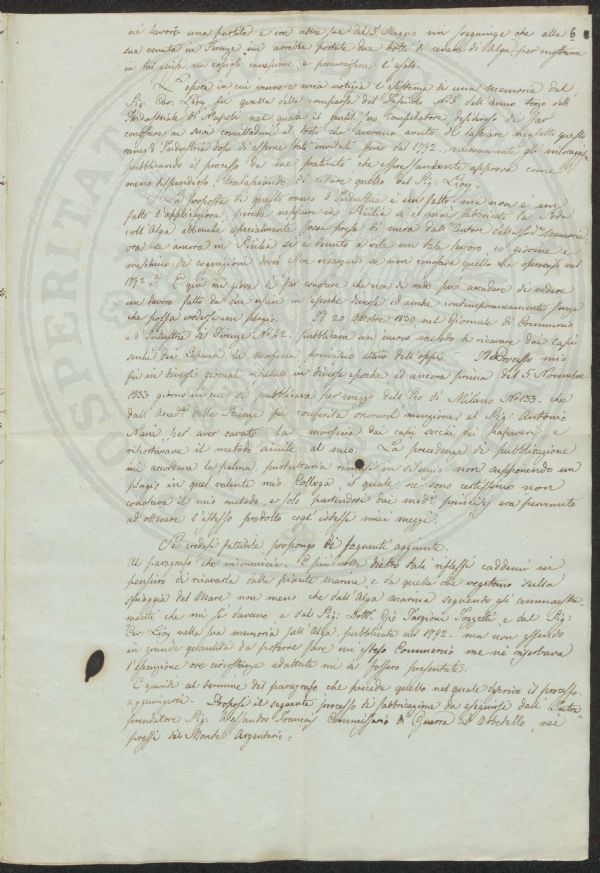 6
nè lavorò una partita e con altra sua del 5 Maggio mi soggiunge che alla
sua venuta in Firenze mi avrebbe portate due botti di ceneri di Alga, per
in tal guisa un copioso e procurarsene l'esito.
L'epoca in cui venne a mia notizia l'esistenza di una memoria del
Sig: Cav: Lioy fu quella della comparsa del Fascicolo N° 5 dell'anno terzo dell'
Industriale di Napoli nel quale il gentil suo Compilatore, desideroso di far
conoscere ai suoi concittadini il torto che avevano avuto di lasciare negletto questo
ramo d'Industria dopo di esserne stati invitati fino dal 1792, nuovamente gli
pubblicando il processo da me praticato che approva come
meno dispendioso, tralasciando di citare quello del Sig: Lioy.
La proposta di questo ramo d'Industria è un fatto, ma non è un
fatto l'applicazione, perché neppure in Sicilia si è mai fabbricato la Soda
coll'Alga
ora se ancora in Sicilia si è tenuto a vile un tale lavoro io giovine e
meschino di cognizioni dovrò esser se non conosceva quello che operavasi nel
1792. E qui mi giova di far conoscere che non di rado suol accadere di vedere
un lavoro fatto da due in epoche diverse ed anche contemporaneamente senza
che possa credersi un plagio. Il 20 Ottobre 1830 nel Giornale di Commercio
e d'Industria di Firenze N° 42. pubblicava un nuovo metodo di ricavare dai capi
secchi dei Papaveri la morfina principio attivo dell'oppio. Il Processo mio
fu in diversi giornali ripetuto in diverse epoche ed ancora prima del 5 Novembre
1833 giorno in cui si pubblicava per mezzo dell'Eco di Milano N° 133. che
dall'Acad: delle Scienze fu conferita onorevol menzione al Sig: Antonio
Nani, per aver cavato la morfina dai capi secchi dei papaveri e
riscontravane il metodo simile al mio. La precedenza di pubblicazione
mi accordava la palma, in silenzio non supponendo un
plagio in quel valente mio Collega, il quale, ne sono certissimo non
conosceva il mio metodo, e solo partendosi dai med: principj era pervenuto
ad ottenere l'istesso prodotto cogl'istessi miei mezzi.
Se credesi fattibile propongo le seguenti aggiunte.
Al paragrafo che incomincia. E più volte dietro tali riflessi caddemi in
pensiero di ricavarla dalle piante marine, e da quelle che vegetano sulla
spiaggia del Mare non meno che dall'Alga marina seguendo gli ammaestra-
menti che mi si davano, e dal Sig: Dott: Targioni Tozzetti e dal Sig:
Cav: Lioy nella sua memoria sull'Alga, pubblicata nel 1792. ma non essendo
in grande quantità da poterne fare un esteso Commercio me ne riserbava
l'esecuzione ove circostanze adattate mi si fossero presentate.
E quindi al termine del paragrafo che precede quello nel quale descrivo il processo
aggiungerei. Proposi il seguente processo di fabbricazione da eseguirsi dall'Intra-
prenditore Sig: Alessandro François Commissario di Guerra ad Orbetello, nei
pressi del Monte Argentario.